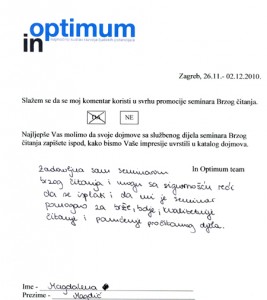 in optimum
Zagreb, 26.11.- 02.12.2010.
Slažem se da se moj komentar koristi u svrhu promocije seminara Brzog čitanja.
DA NE
Najljepše Vas molimo da svoje dojmove sa službenog dijela seminara Brzog
čitanja zapišete ispod, kako bismo Vaše impresije uvrstili u katalog dojmova.
In Optimum team
Zadovoljna sam seminarom
brzog čitanja i mogu sa sigurnošću reći
da se isplati i da mi je seminar
pomogao za brže, bolje, kvalitetnije
čitanje i pamćenje pročitanog djela.
Ime - Magdalena
Prezime -